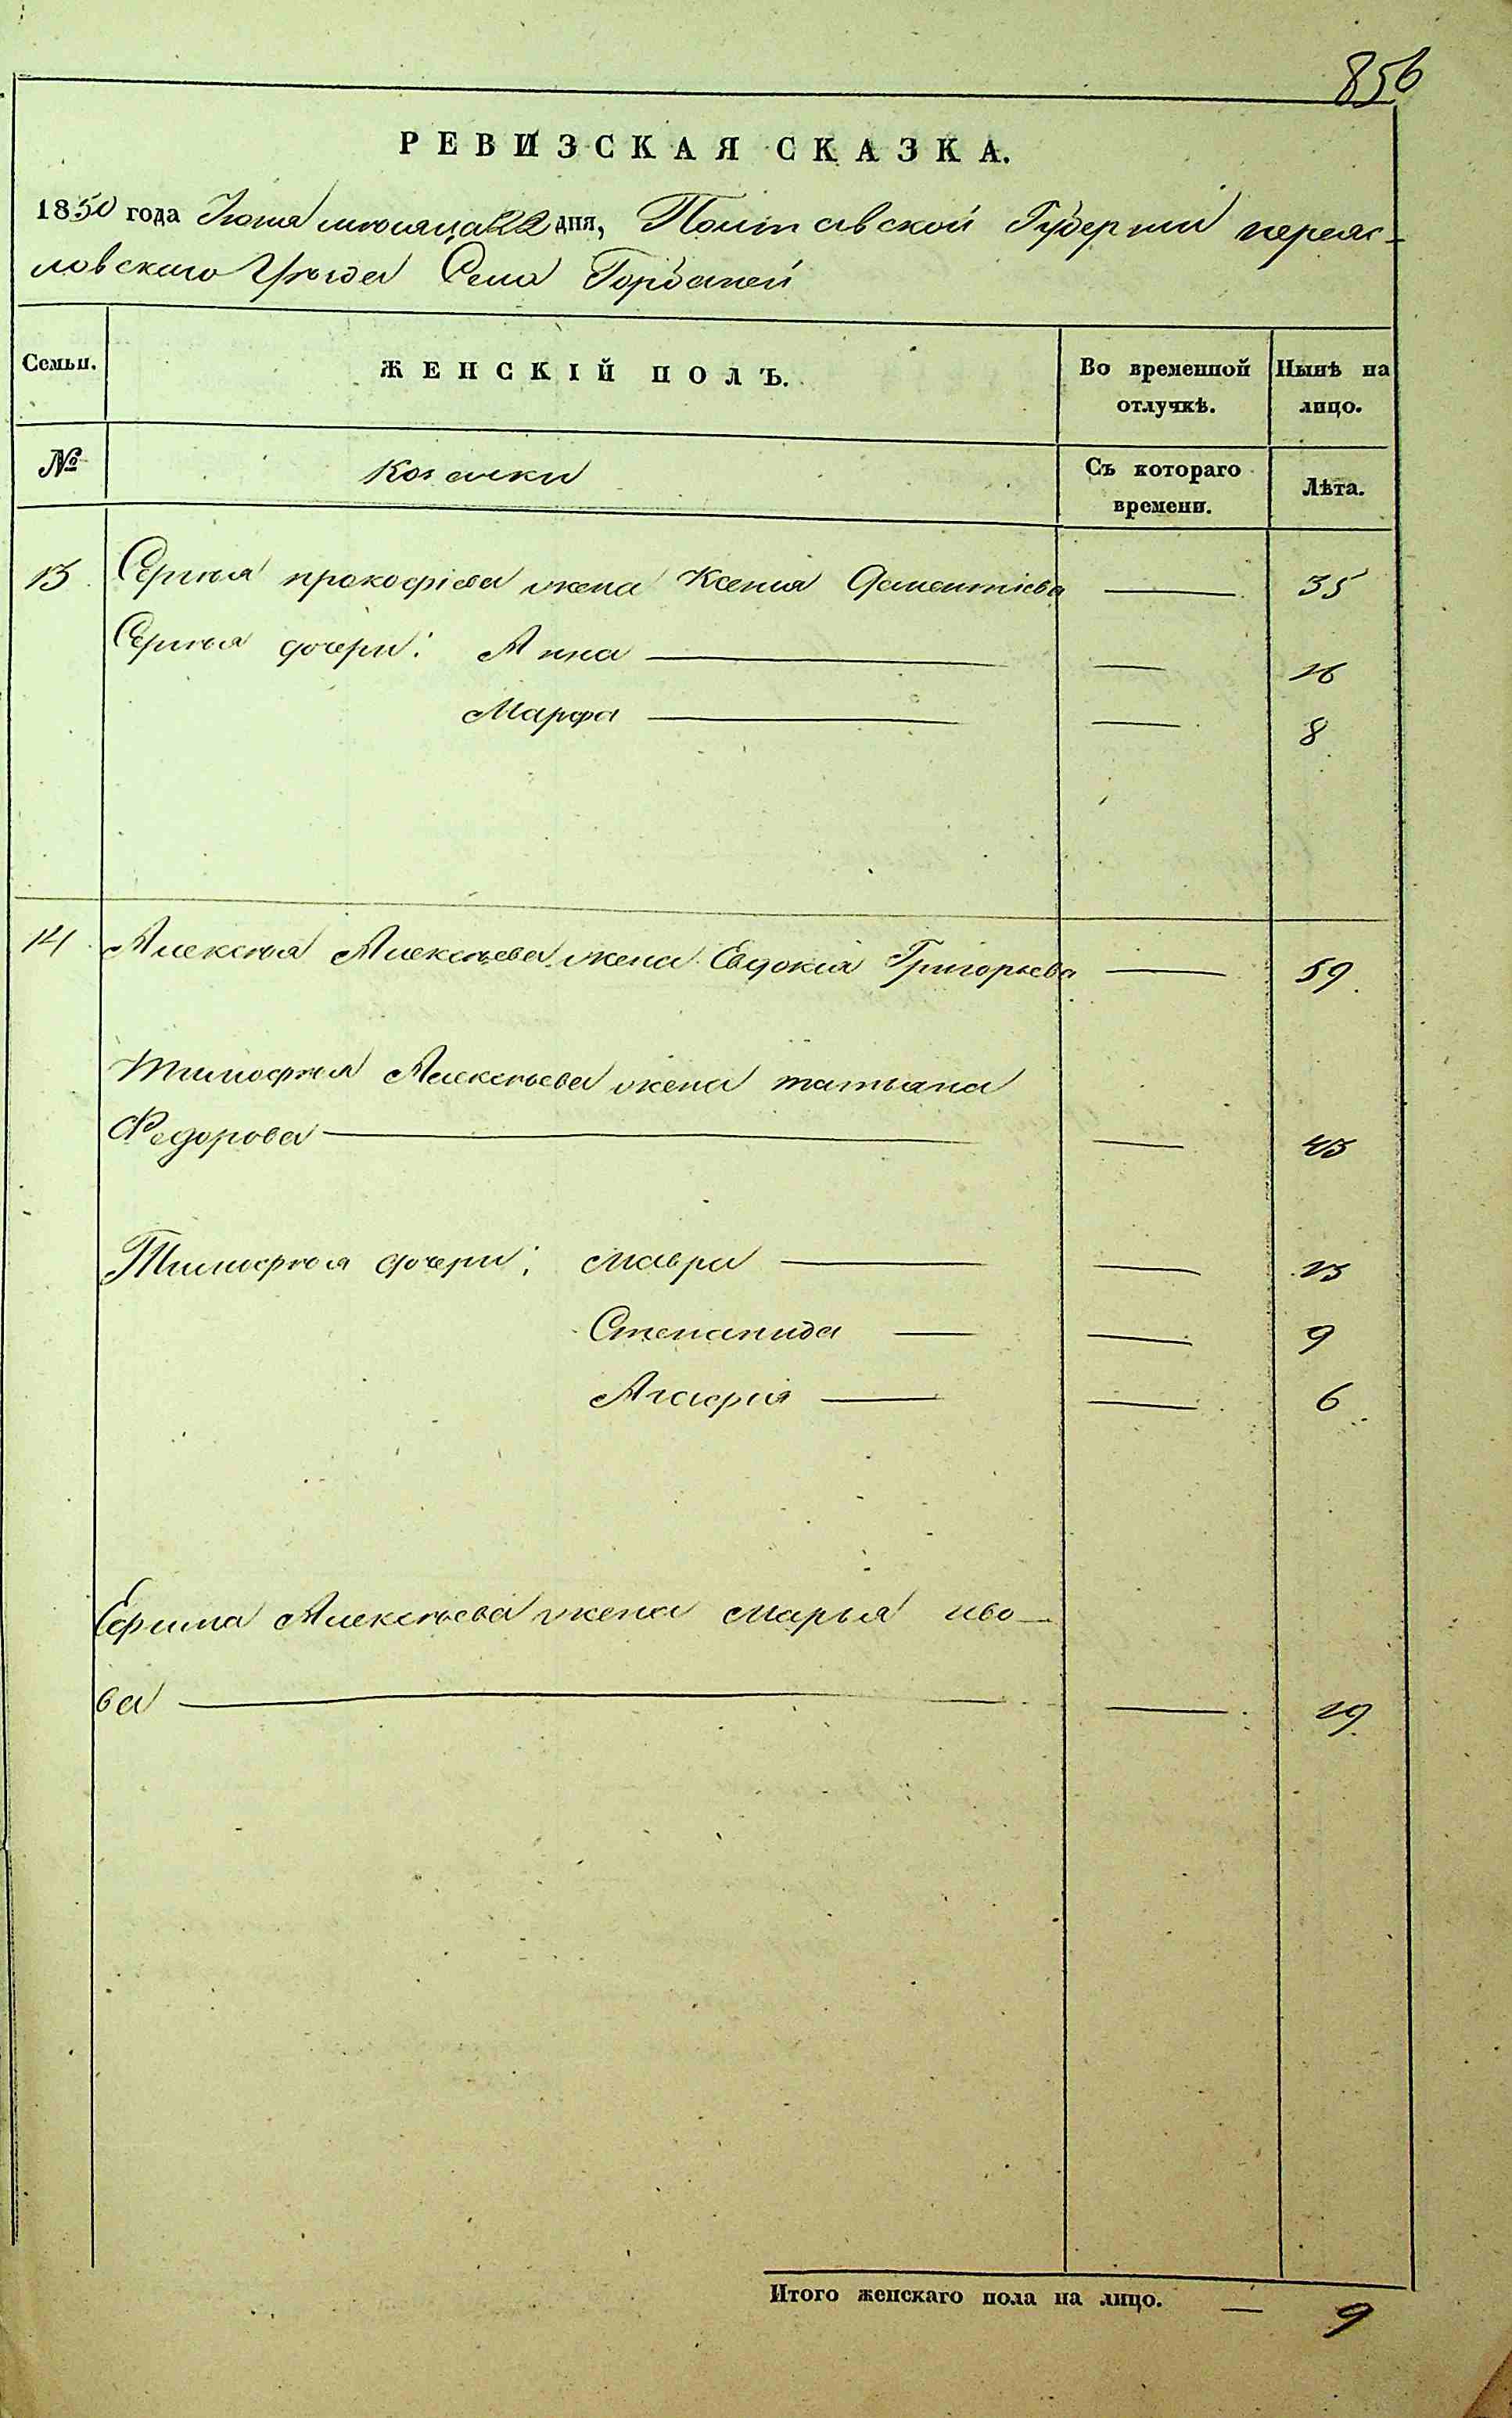 856
РЕВИЗСКАЯ СКАЗКА.
1850 года Іюня месяца 22 дня, Полтавской Губерніи переяс-
ловскаго Уѣзда Села Горбаней
Семьи. ЖЕНСКІЙ ПОЛЪ. Во временной отлучкѣ. Нынѣ на лицо.
№ Козачки Съ котораго времени. Лѣта.
13 Сергѣя прокофіева жена Ксенія Дементіева — 35
Сергѣя дочери: Анна — — 16
Марфа — — 8
14 Алексѣя Алексѣева жена Евдокія Григорьева — 59
Тимофѣя Алексѣева жена татьяна
Федорова — — 43
Тимофѣя дочери: мавра — — 13
Степанида — — 9
Агафія — — 6
Ефима Алексѣева жена марья иво—
ва — — 19
Итого женскаго пола на лицо. — 9